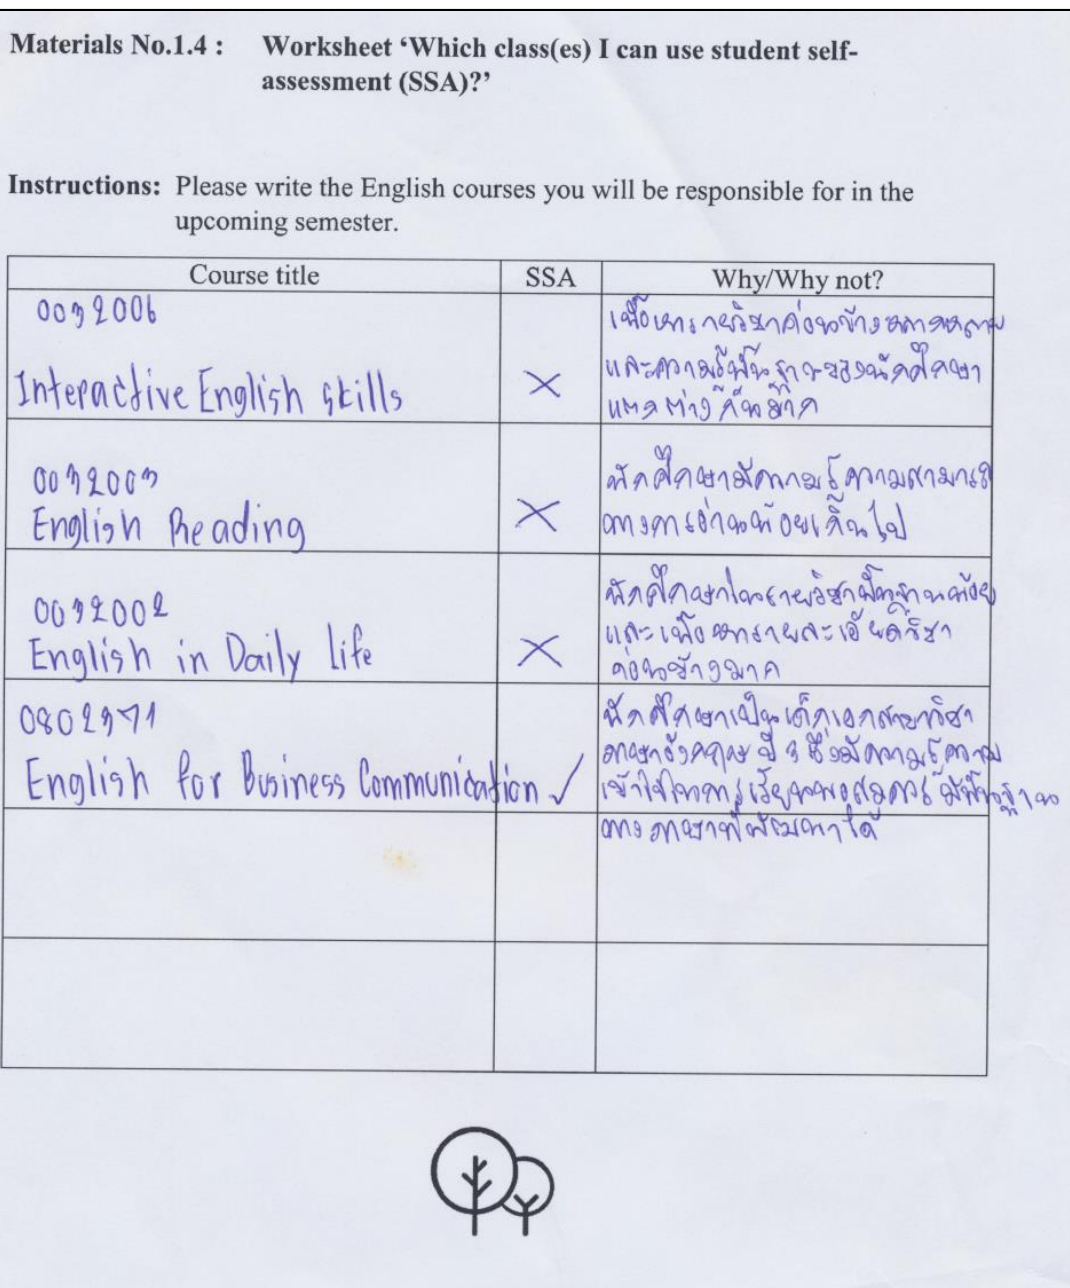 Materials No.1.4 : Worksheet ‘Which class(es) I can use student self-
assessment (SSA)?’
Instructions: Please write the English courses you will be responsible for in the
upcoming semester.
Course title SSA Why/Why not?
0032006
Interactive English skills ×
เนื้อหารายวิชาค่อนข้างหลากหลาย
และความรู้พื้นฐานของนักศึกษา
แตกต่างกันมาก
0032003
English Reading ×
นักศึกษามีความรู้ความสามารถ
ทางการอ่านน้อยเกินไป
0032002
English in Daily life ×
นักศึกษาในรายวิชาพื้นฐานน้อย
และเนื้อหารายละเอียดวิชา
ค่อนข้างมาก
0802371
English for Business Communication ✓
นักศึกษาเป็นเด็กเอกสาขาวิชา
ภาษาอังกฤษ ปี 3 ซึ่งมีความรู้ความ
เข้าใจในการเรียนพอสมควร มีพื้นฐาน
ทางภาษาที่พัฒนาได้